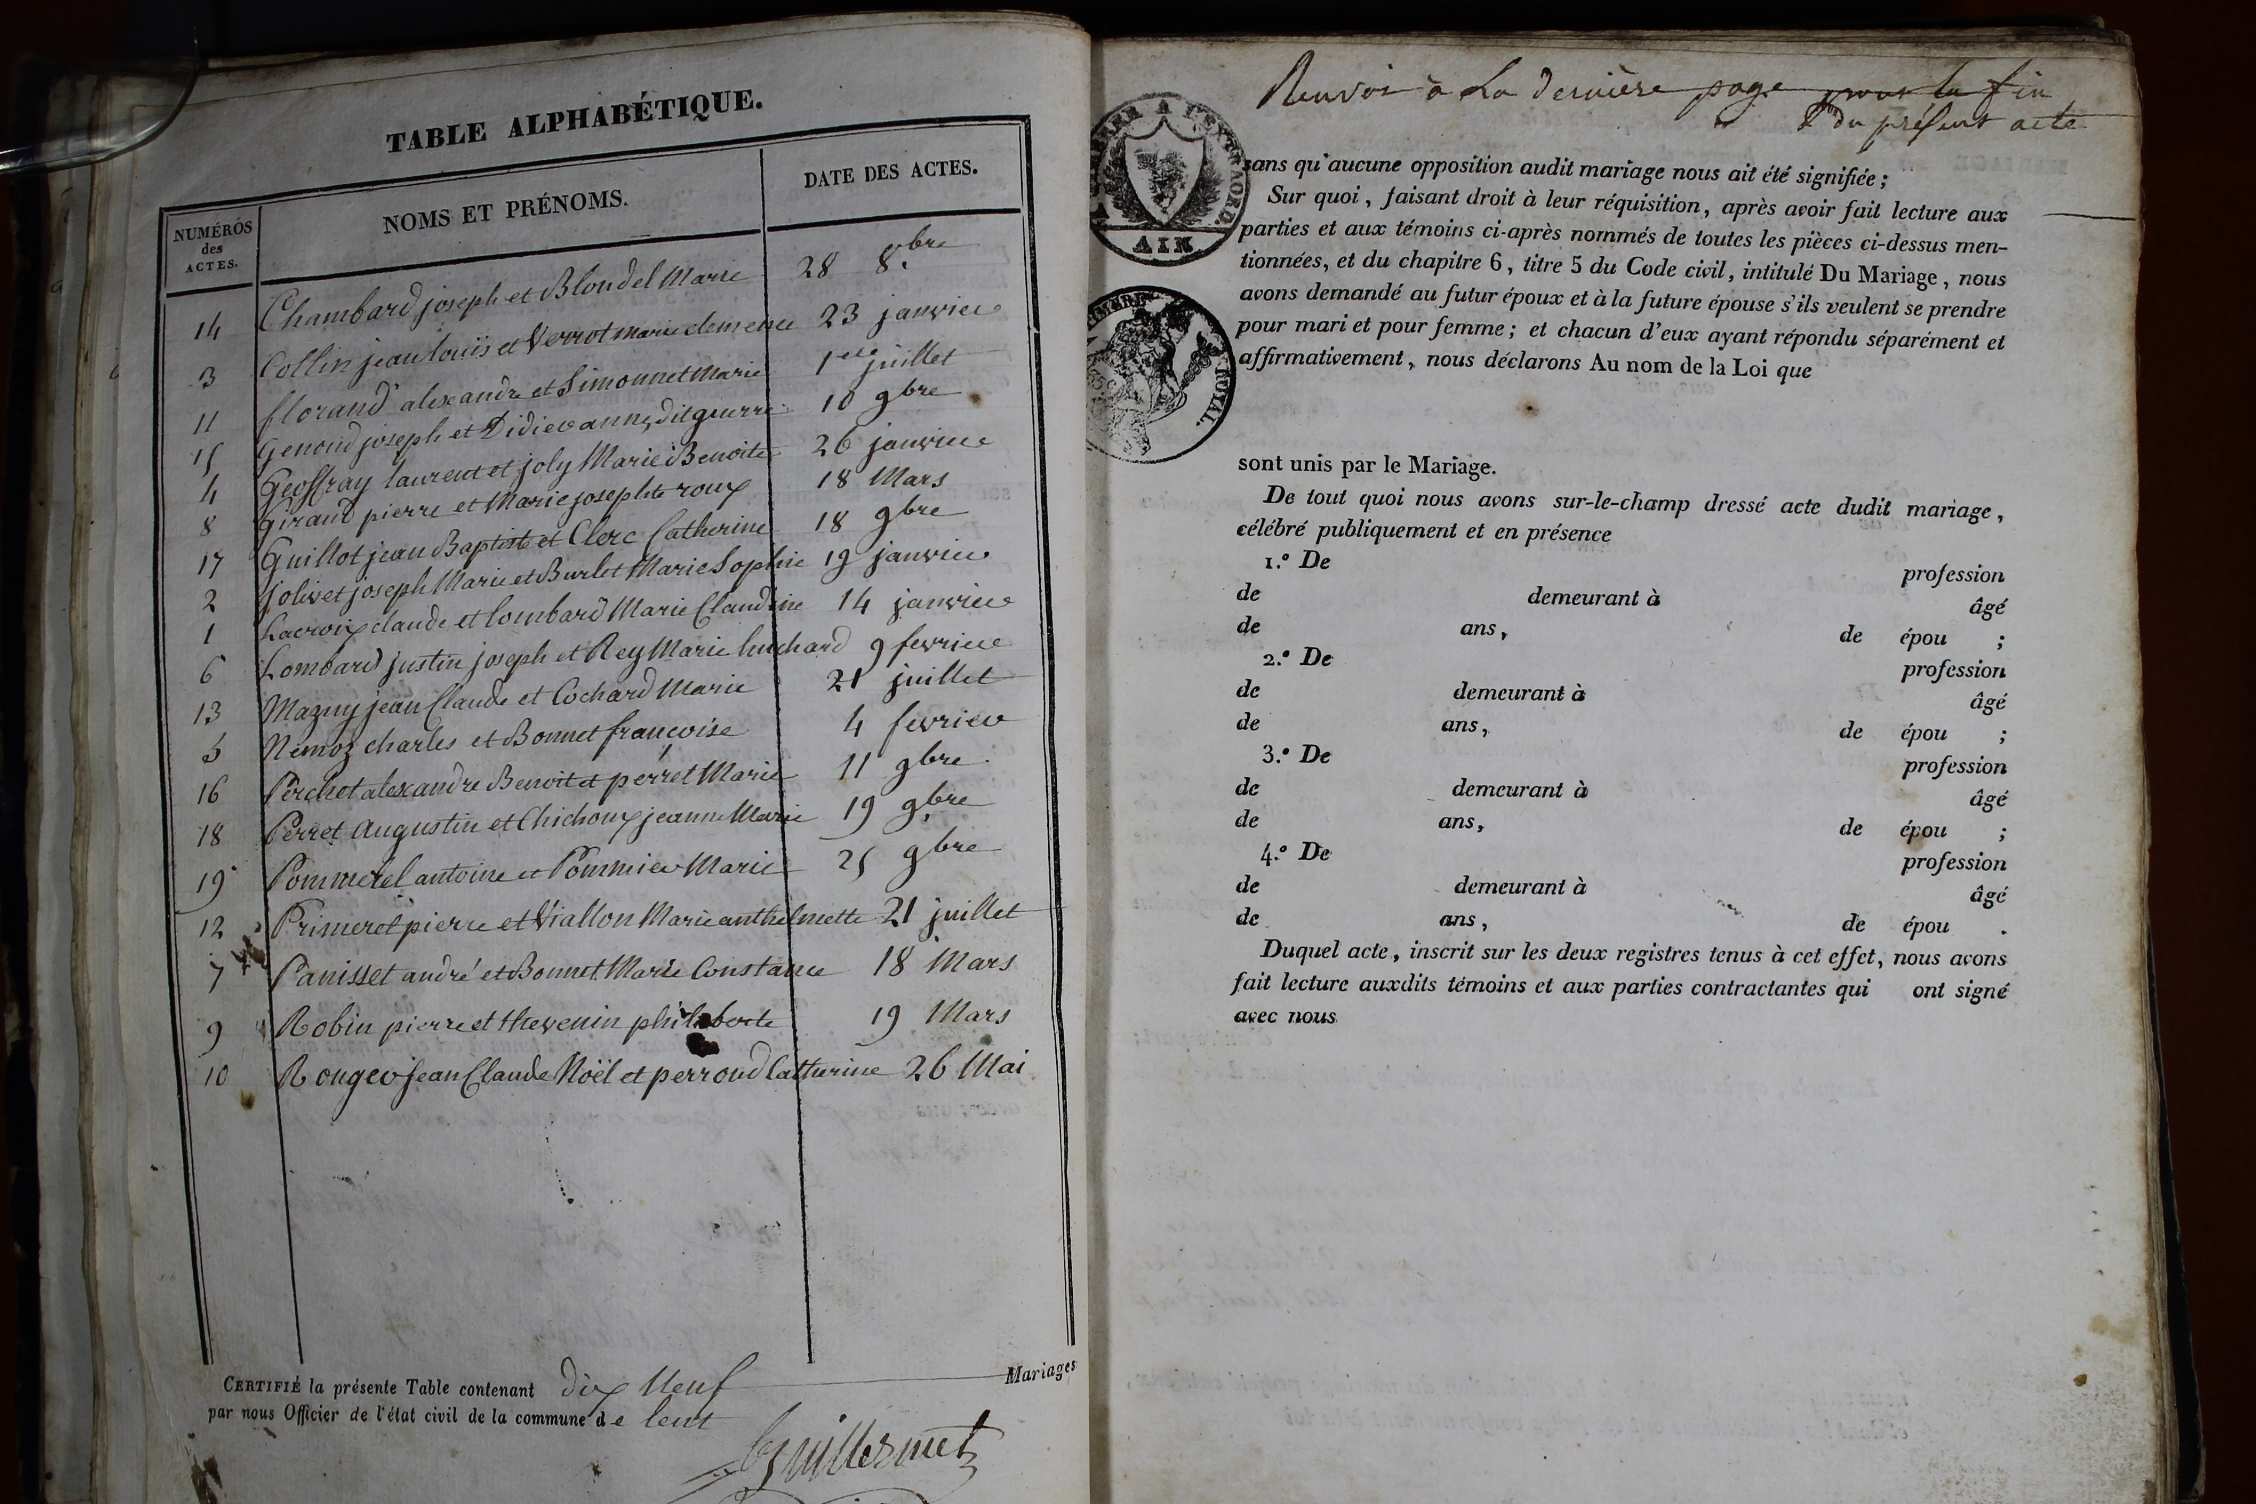 TABLE ALPHABÉTIQUE.
NUMÉROS des ACTES. NOMS ET PRÉNOMS. DATE DES ACTES.
14 Chambard joseph et Blondel Marie 28 8.bre
3 Collin jean louis et Verrot marie clemence 23 janvier
11 florand alexandre et Simonnet Marie 1er juillet
15 Genoud joseph et Didier anne, dit guerre 10 9bre
4 Geoffray laurent et joly Marie Benoite 26 janvier
8 Giraud pierre et Marie josephte roux 18 Mars
17 Guillot jean Baptiste et Clerc Catherine 18 9bre
2 jolivet joseph Marie et Burlet Marie Sophie 19 janvier
1 Lacroix claude et lombard Marie Claudine 14 janvier
6 Lombard justin joseph et Rey Marie huchard 9 fevrier
13 Mazuy jean Claude et Cochard Marie 21 juillet
5 Nemoz charles et Bonnet françoise 4 fevrier
16 Perchet alexandre Benoit et perret Marie 11 9bre
18 Perret Augustin et Chichoux jeanne Marie 19 9bre
19 Pommerel antoine et Pommier Marie 25 9bre
12 Primeret pierre et Viallon Marie anthelmette 21 juillet
7 Panisset andré et Bonnet Marie Constance 18 Mars
9 Robin pierre et thevenin philiberte 19 Mars
10 Rouger jean Claude Noël et perroud Catherine 26 Mai
CERTIFIÉ la présente Table contenant dix Neuf Mariages
par nous Officier de l'état civil de la commune de lent
Guillermet
Renvoi à La dernière page pour la fin
du présent acte
AIN
ROYAL.
sans qu'aucune opposition audit mariage nous ait été signifiée ;
Sur quoi, faisant droit à leur réquisition, après avoir fait lecture aux
parties et aux témoins ci-après nommés de toutes les pièces ci-dessus men-
tionnées, et du chapitre 6, titre 5 du Code civil, intitulé Du Mariage, nous
avons demandé au futur époux et à la future épouse s'ils veulent se prendre
pour mari et pour femme ; et chacun d'eux ayant répondu séparément et
affirmativement, nous déclarons Au nom de la Loi que
sont unis par le Mariage.
De tout quoi nous avons sur-le-champ dressé acte dudit mariage,
célébré publiquement et en présence
1.° De profession
de demeurant à âgé
de ans, de épou ;
2.° De profession
de demeurant à âgé
de ans, de épou ;
3.° De profession
de demeurant à âgé
de ans, de épou ;
4.° De profession
de demeurant à âgé
de ans, de épou .
Duquel acte, inscrit sur les deux registres tenus à cet effet, nous avons
fait lecture auxdits témoins et aux parties contractantes qui ont signé
avec nous